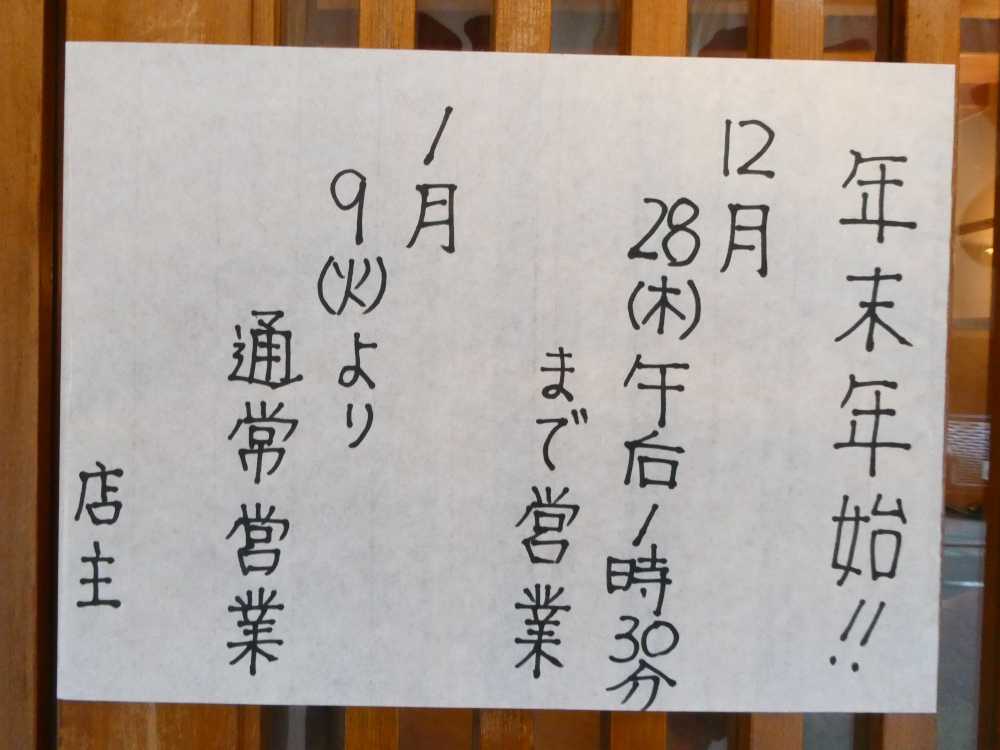 年末年始!!
12月
28(木)午后1時30分
まで営業
1月
9(火)より
通常営業
店主